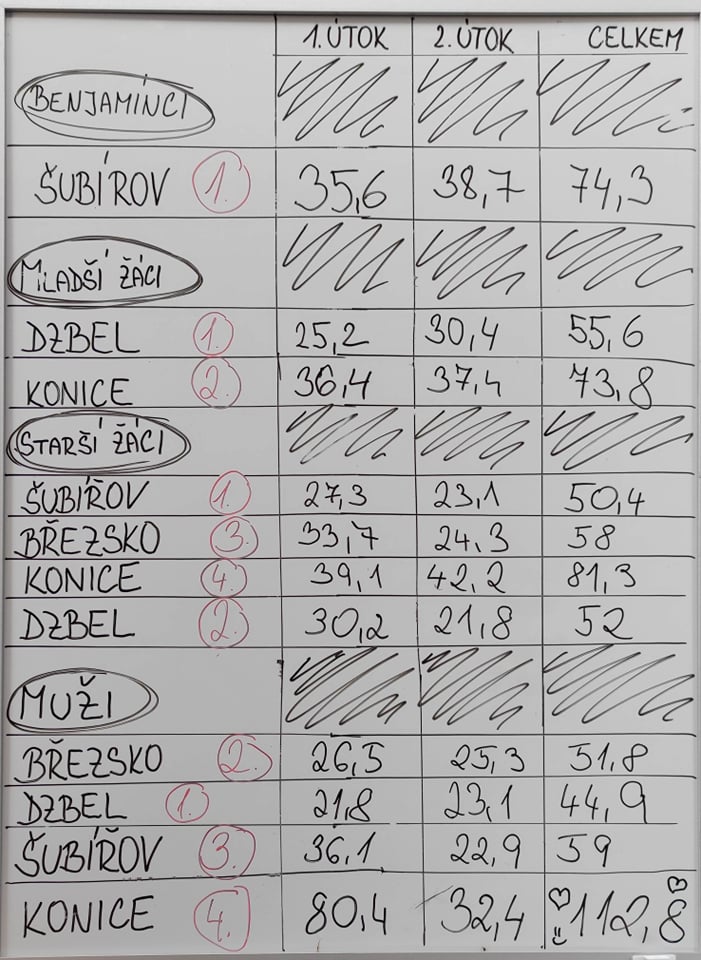 1. ÚTOK 2. ÚTOK CELKEM
BENJAMÍNCI
ŠUBÍŘOV 1. 35,6 38,7 74,3
MLADŠÍ ŽÁCI
DZBEL 1. 25,2 30,4 55,6
KONICE 2. 36,4 37,4 73,8
STARŠÍ ŽÁCI
ŠUBÍŘOV 1. 27,3 23,1 50,4
BŘEZSKO 3. 33,7 24,3 58
KONICE 4. 39,1 42,2 81,3
DZBEL 2. 30,2 21,8 52
MUŽI
BŘEZSKO 2. 26,5 25,3 51,8
DZBEL 1. 21,8 23,1 44,9
ŠUBÍŘOV 3. 36,1 22,9 59
KONICE 4. 80,4 32,4 112,8